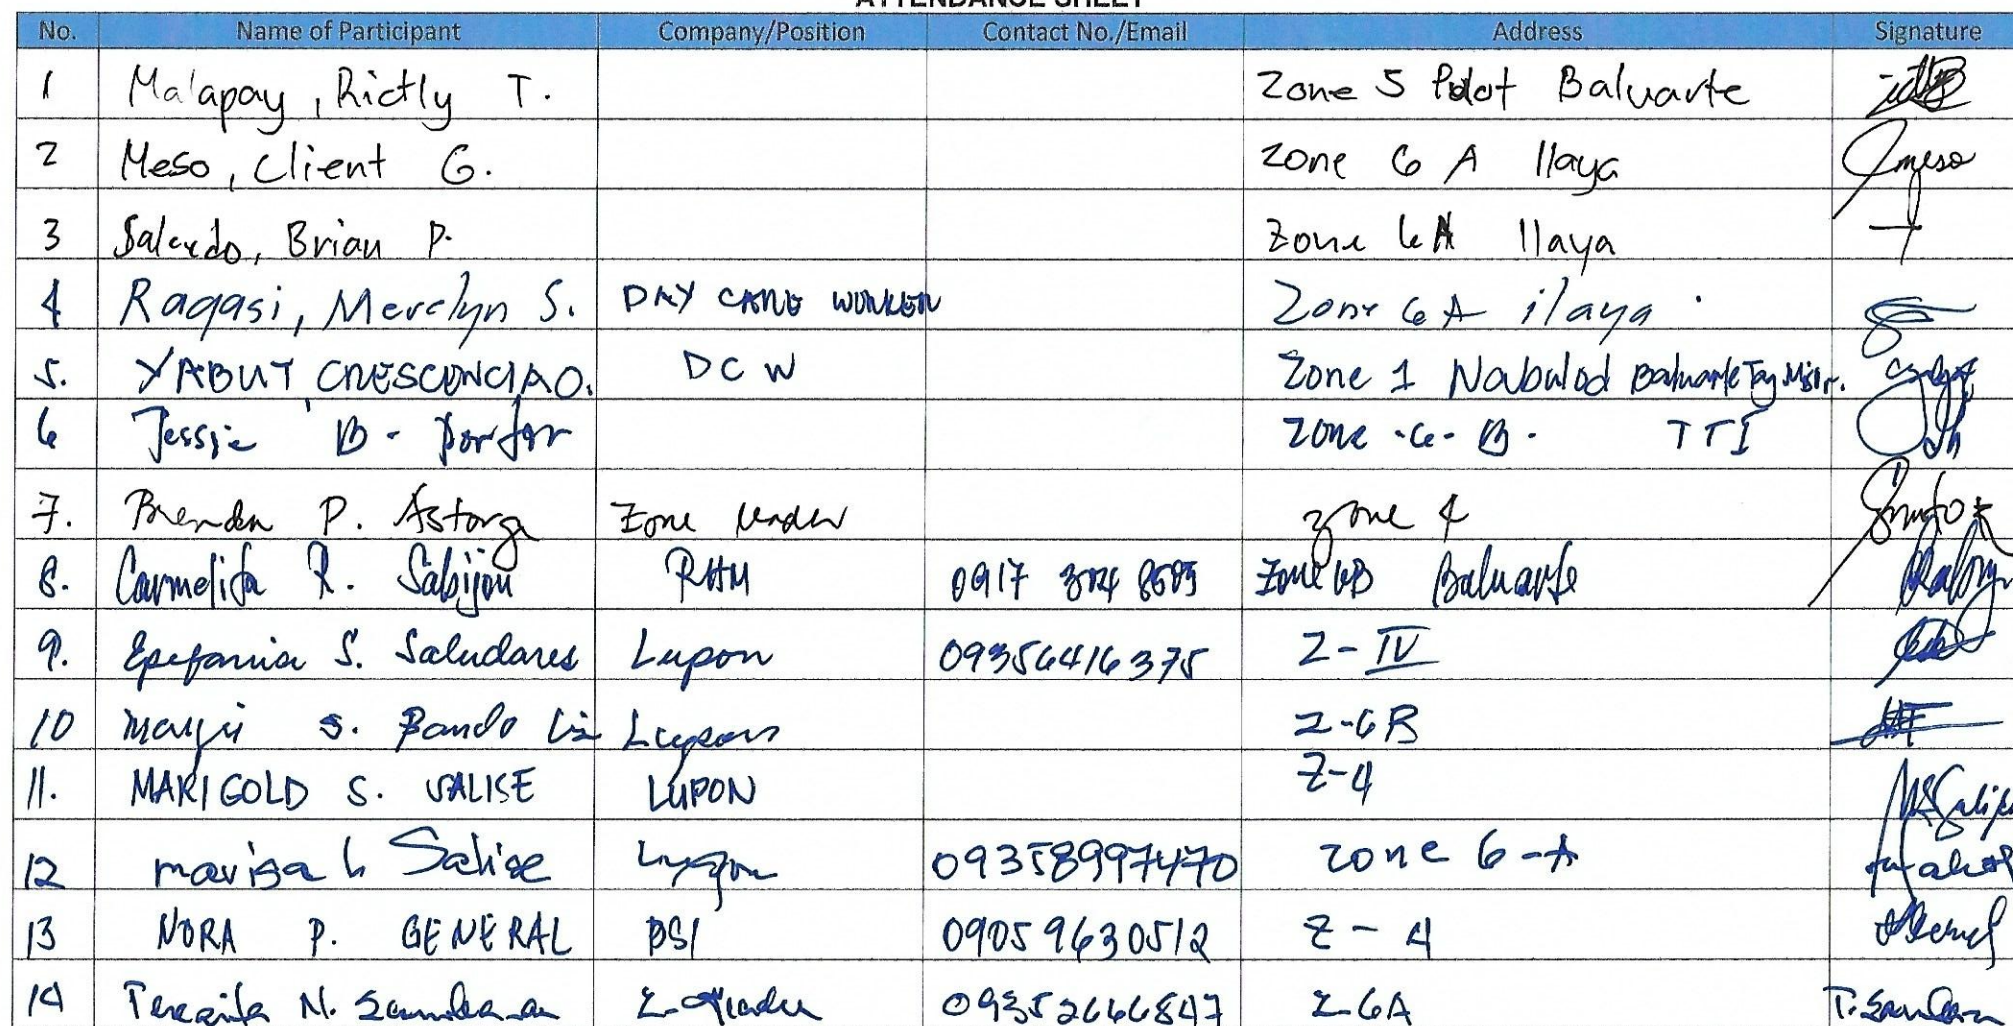 ATTENDANCE SHEET
No. Name of Participant Company/Position Contact No./Email Address Signature
1 Malapay, Rictly T. Zone 5 Baluarte
2 Meso, Client G. Zone 6 A Ilaya
3 Salcedo, Brian P. Zone 6A Ilaya
4 Ragasi, Merelyn S. DAY CARE WORKER Zone 6A ilaya
5. YABUT CRESCENCIA O. DCW Zone 1 Nabulod Baluarte Tag. Mis. Or.
6 Jessie B. Zone -6- B. TTI
7. Brenda P. Astorga Zone leader zone 4
8. Carmelita R. Sabijon RHM 0917 Zone 6B Baluarte
9. Epefania S. Saludares Lupon 09356416375 Z-IV
10 S. Lupon Z-6B
11. MARIGOLD S. SALISE LUPON Z-4
12 marisa L Salise Lupon 09358997470 zone 6-A
13 NORA P. GENERAL BSI 09059630512 Z-4
14 Teresita N. 09352646847 Z-6A